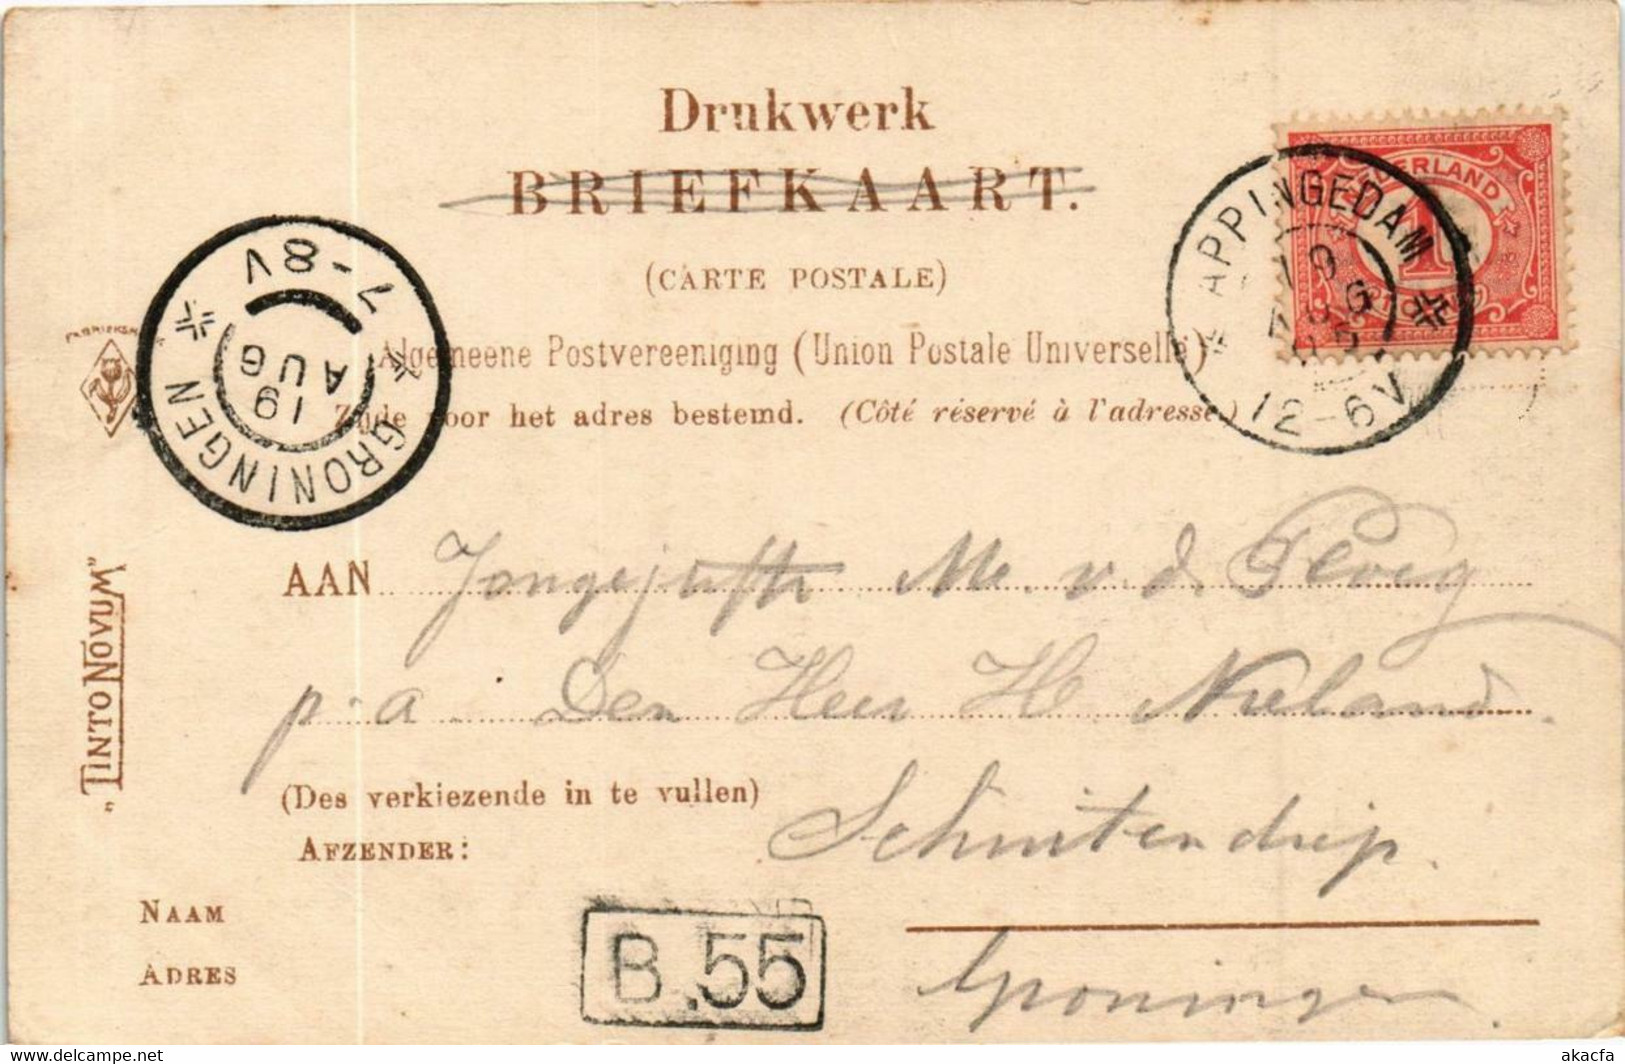 Drukwerk
BRIEFKAART.
(CARTE POSTALE)
Algemeene Postvereeniging (Union Postale Universelle)
Zijde voor het adres bestemd. (Côté réservé à l'adresse.)
APPINGEDAM
12-6V
7-8V
19
AUG
GRONINGEN
"TINTO NOVUM"
AAN Jongejufr M. v. d. Ploeg
p. a Den Heer H. Nieland.
(Des verkiezende in te vullen)
AFZENDER:
Schuitendiep.
NAAM
ADRES
B.55
Groningen
akacfa
www.akacfa.com